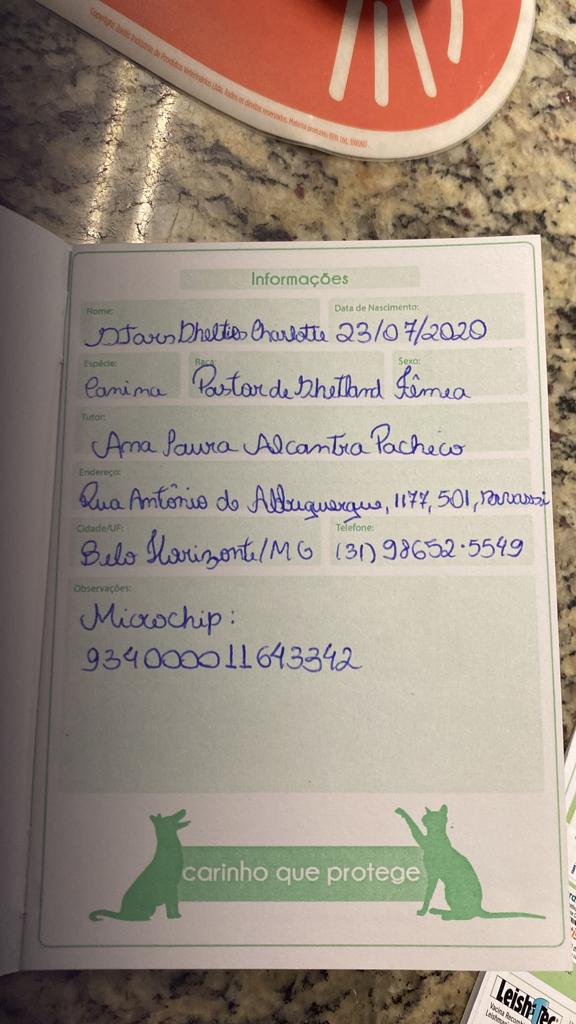 Copyright Zoetis Indústria de Produtos Veterinários Ltda. Todos os direitos reservados. Material produzido
Informações
Nome: Data de Nascimento:
Stars Shelties Charlotte 23/07/2020
Espécie: Raça: Sexo:
Canina Pastor de Shetland Fêmea
Tutor:
Ana Laura Alcantra Pacheco
Endereço:
Rua Antônio de Albuquerque, 1177, 501, Savassi
Cidade/UF: Telefone:
Belo Horizonte/MG (31) 98652-5549
Observações:
Microchip:
934000011643342
carinho que protege
Leish-Tec
Vacina Recom
Leishm